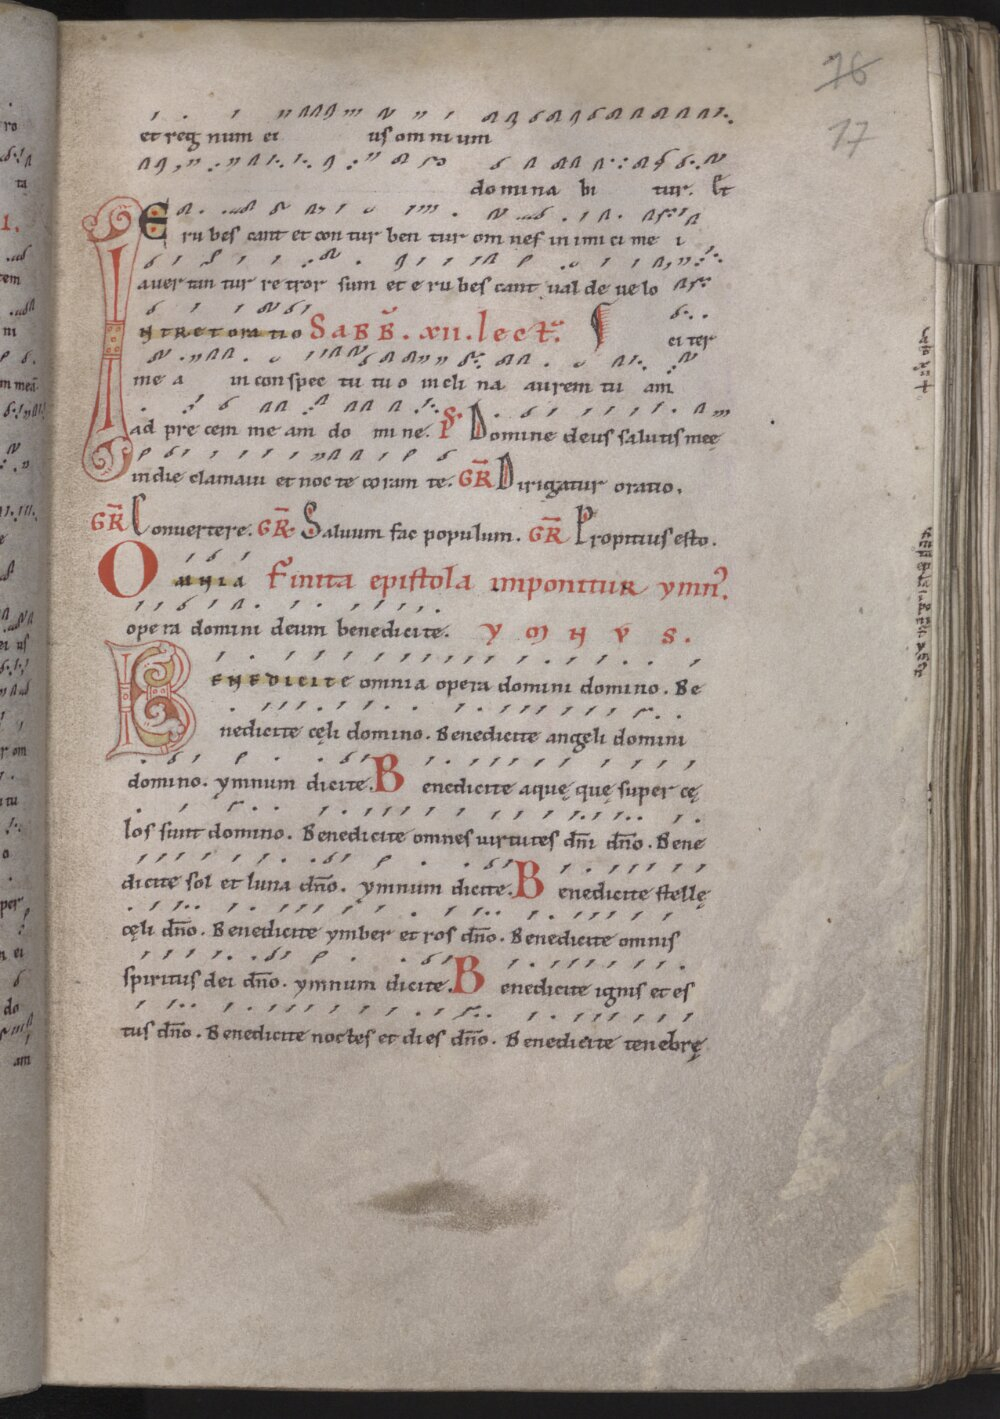 76
17
et reg num ei us om ni um
domina bi tur. Et
E ru bes cant et con tur ben tur om nes in imi ci me i
auer tan tur re tror sum et e ru bes cant ual de ue lo
INTRET ORATIO SaBB̄. xii. lect̄. ci ter
me a in con spec tu tu o in cli na aurem tu am
ad pre cem me am do mi ne. Ps. Domine deus salutis meę
in die clamaui et noc te coram te. GR̄ Dirigatur oratio.
GR̄ Conuertere. GR̄ Saluum fac populum. GR̄ Propitius esto.
OMNIA Finita epistola imponitur ymn̄.
opera domini deum benedicite. Y M N V S.
BENEDICITE omnia opera domini domino. Be
nedicite cęli domino. Benedicite angeli domini
domino. ymnum dicite. Benedicite aquę quę super cę
los sunt domino. Benedicite omnes uirtutes dn̄i dn̄o. Bene
dicite sol et luna dn̄o. ymnum dicite. Benedicite stellę
cęli dn̄o. Benedicite ymber et ros dn̄o. Benedicite omnis
spiritus dei dn̄o. ymnum dicite. Benedicite ignis et es
tus dn̄o. Benedicite noctes et dies dn̄o. Benedicite tenebrę